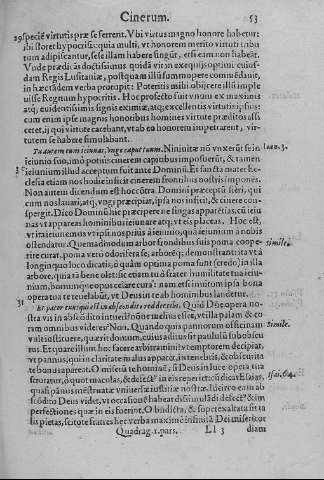 Cinerum. 53
29 speciē virtutis præ se ferrent. Vbi virtus magno honore habetur:
ibi floret hypocrisis: quia multi, vt honorem merito virtuti tribu
tum adipiscantur, sese illam habere fingūt, etsi eam non habeāt.
Vnde prædicās doctissimus quidā vir in exequijs optimi cuius-
dam Regis Lusitaniæ, postquam illū summopere commēdauit,
in hæc tādem verba prorupit: Poteritis mihi obijcere illū
uisse Regnum hypocritis. Hoc profecto fuit vnum ex maximis
atq; euidentissimis signis eximiæ, atq; excellentis virtutis ipsius:
cum enim ipse magnis honoribus homines virtute præditos affi
ceret, ij qui virtute carebant, vt ab eo honorem impetrarent, vir-
tutem se habere simulabant.
Tu autem cum ieiunas, vnge caput tuum. Niniuitæ nō vnxerūt se in Ioan. 3.
ieiunio suo, imò potiùs cinerem capitibus imposuerūt, & tamen
30 ieiunium illud acceptum fuit ante Dominū. Et sancta mater Ec-
clesia etiam nos hodie inficit cinerem frontibus nostris imponēs.
Non autem dicendum est hoc cōtra Domini præceptū fieri, qui
cum nos lauari, atq; vngi præcipiar, ipsa nos inficit, & cinere con-
spergit. Dico Dominū hic præcipere ne fingas apparētias, cū ieiu
nas vt appareas hominibus ieiunare atq; vt eis placeas. Hoc est,
vt ita ieiunemus vt ipsi nos priùs à ieiunio, quā ieiunium à nobis
ostendatur. Quemadmodum arbor frondibus suis poma coope- Simile.
rire curat, poma verò odorifera se, arborēq; demonstrant: ita vt à
longinquo loco dicatis, ò quām optima poma sunt (credo) in illa
arbore, quia ita bene olet: sic etiam tu
nium, bonumque opus celare cura: nam etsi inuitum ipsa bona
opera tua te reuelabūt, vt Deus in te ab hominibus laudetur.
31 Et pater tuus qui est in abscondito reddet tibi. Quid Dñe opera no-
stra vis in abscōdito intueri? nōne melius esset, vt illa palam & co
ram omnibus videres? Non. Quando quis pannorum officinam Simile.
vult eos
rus. Et quare illum huc facere arbitramini? vt emptorem decipiat,
vt pannus, qui in claritate malus apparet, in tenebris, & obscuritā
te bonus appareat. O miserū te hominē, si Deus in luce opera tua
scrutatur, ò quot maculas, & defectꝰ in eis reperiet: cū dicat Esaias, Isai. 64.
quasi pānus mēstruatæ vniuersæ iustitiæ nostræ. Ideirco eam ab
scōdito Deus videt, vt occasionē habeat dissimulādi defectꝰ & im
perfectiones quæ in eis fuerint. O
lis pietas, scitote fratres hæc verba maximè infinitā Dei misericor
Quadrag. 1. pars. Ll 3 diam